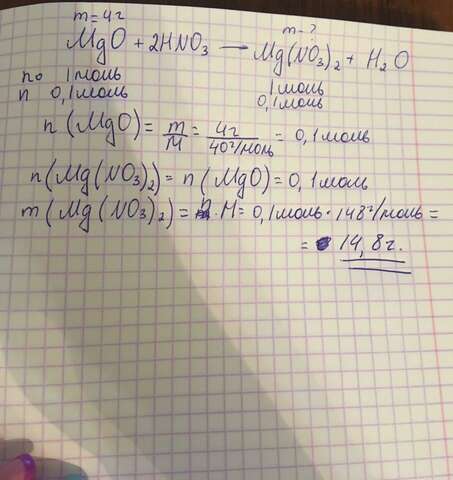 m=4г m-?
MgO + 2HNO₃ → Mg(NO₃)₂ + H₂O
по 1моль 1моль
n 0,1моль 0,1моль
n (MgO) = m/M = 4г/40г/моль = 0,1моль
n(Mg(NO₃)₂) = n (MgO) = 0,1моль
m(Mg(NO₃)₂) = n·M = 0,1моль·148г/моль =
= 14,8г.